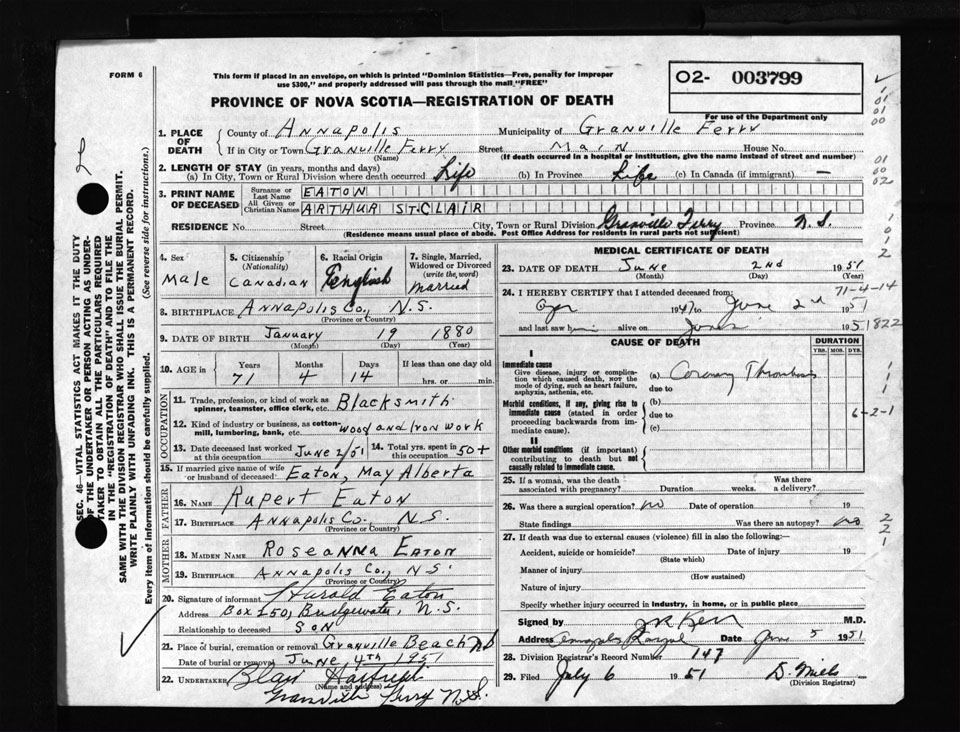 FORM 6
This form if placed in an envelope, on which is printed "Dominion Statistics—Free, penalty for improper
use $300," and properly addressed will pass through the mail "FREE"
02- 003799
PROVINCE OF NOVA SCOTIA—REGISTRATION OF DEATH
For use of the Department only
1. PLACE OF DEATH County of Annapolis Municipality of Granville Ferry
If in City or Town Granville Ferry Street Main House No.
(Name) (If death occurred in a hospital or institution, give the name instead of street and number)
2. LENGTH OF STAY (in years, months and days)
(a) In City, Town or Rural Division where death occurred Life (b) In Province Life (c) In Canada (if immigrant) —
3. PRINT NAME OF DECEASED Surname or Last Name EATON
All Given or Christian Names ARTHUR ST. CLAIR
RESIDENCE No. Street City, Town or Rural Division Granville Ferry Province N.S.
(Residence means usual place of abode. Post Office Address for residents in rural parts not sufficient)
4. Sex Male
5. Citizenship (Nationality) Canadian
6. Racial Origin English
7. Single, Married, Widowed or Divorced (write the word) Married
8. BIRTHPLACE Annapolis Co., N.S.
(Province or Country)
9. DATE OF BIRTH January 19 1880
(Month) (Day) (Year)
10. AGE in Years 71 Months 4 Days 14 If less than one day old hrs. or min.
OCCUPATION
11. Trade, profession, or kind of work as
spinner, teamster, office clerk, etc. Blacksmith
12. Kind of industry or business, as cotton-
mill, lumbering, bank, etc. Wood and Iron work
13. Date deceased last worked at this occupation June 2/51 14. Total yrs. spent in this occupation 50+
15. If married give name of wife or husband of deceased Eaton, May Alberta
FATHER
16. NAME Rupert Eaton
17. BIRTHPLACE Annapolis Co. N.S.
(Province or Country)
MOTHER
18. MAIDEN NAME Roseanna Eaton
19. BIRTHPLACE Annapolis Co., N.S.
(Province or Country)
20. Signature of informant Harold Eaton
Address Box 250, Bridgewater, N.S.
Relationship to deceased Son
21. Place of burial, cremation or removal Granville Beach
Date of burial or removal June 4th 1951
22. UNDERTAKER Blair
(Name and address)
Granville Ferry N.S.
MEDICAL CERTIFICATE OF DEATH
23. DATE OF DEATH June 2nd 1951
(Month) (Day)
71-4-14
24. I HEREBY CERTIFY that I attended deceased from:
1947 to June 2nd 1951
and last saw him alive on June 1951
822
CAUSE OF DEATH DURATION
YRS. MOS. DYS.
I
Immediate cause
Give disease, injury or complica-
tion which caused death, NOT the
mode of dying, such as heart failure,
asphyxia, asthenia, etc.
(a) Coronary Thrombosis
due to
Morbid conditions, if any, giving rise to
immediate cause (stated in order
proceeding backwards from im-
mediate cause).
(b)
due to
(c)
6-2-1
II
Other morbid conditions (if important)
contributing to death but not
causally related to immediate cause.
25. If a woman, was the death associated with pregnancy? Duration weeks. Was there a delivery?
26. Was there a surgical operation? no Date of operation 19
State findings Was there an autopsy? no
27. If death was due to external causes (violence) fill in also the following:—
Accident, suicide or homicide? Date of injury 19
(State which)
Manner of injury
(How sustained)
Nature of injury
Specify whether injury occurred in industry, in home, or in public place
Signed by M.D.
Address Annapolis Royal Date June 5 1951
28. Division Registrar's Record Number 147
29. Filed July 6 1951 D. Mills
(Division Registrar)
SEC. 46—VITAL STATISTICS ACT MAKES IT THE DUTY
OF THE UNDERTAKER OR PERSON ACTING AS UNDER-
TAKER TO OBTAIN ALL THE PARTICULARS REQUIRED
IN THE "REGISTRATION OF DEATH" AND TO FILE THE
SAME WITH THE DIVISION REGISTRAR WHO SHALL ISSUE THE BURIAL PERMIT.
WRITE PLAINLY WITH UNFADING INK. THIS IS A PERMANENT RECORD.
Every item of information should be carefully supplied. (See reverse side for instructions.)